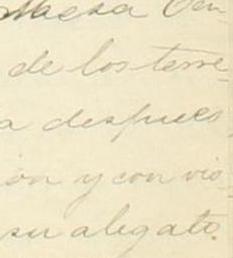 Mesa Cen-
de los terre-
a despues
ón y con vio-
su alegato.